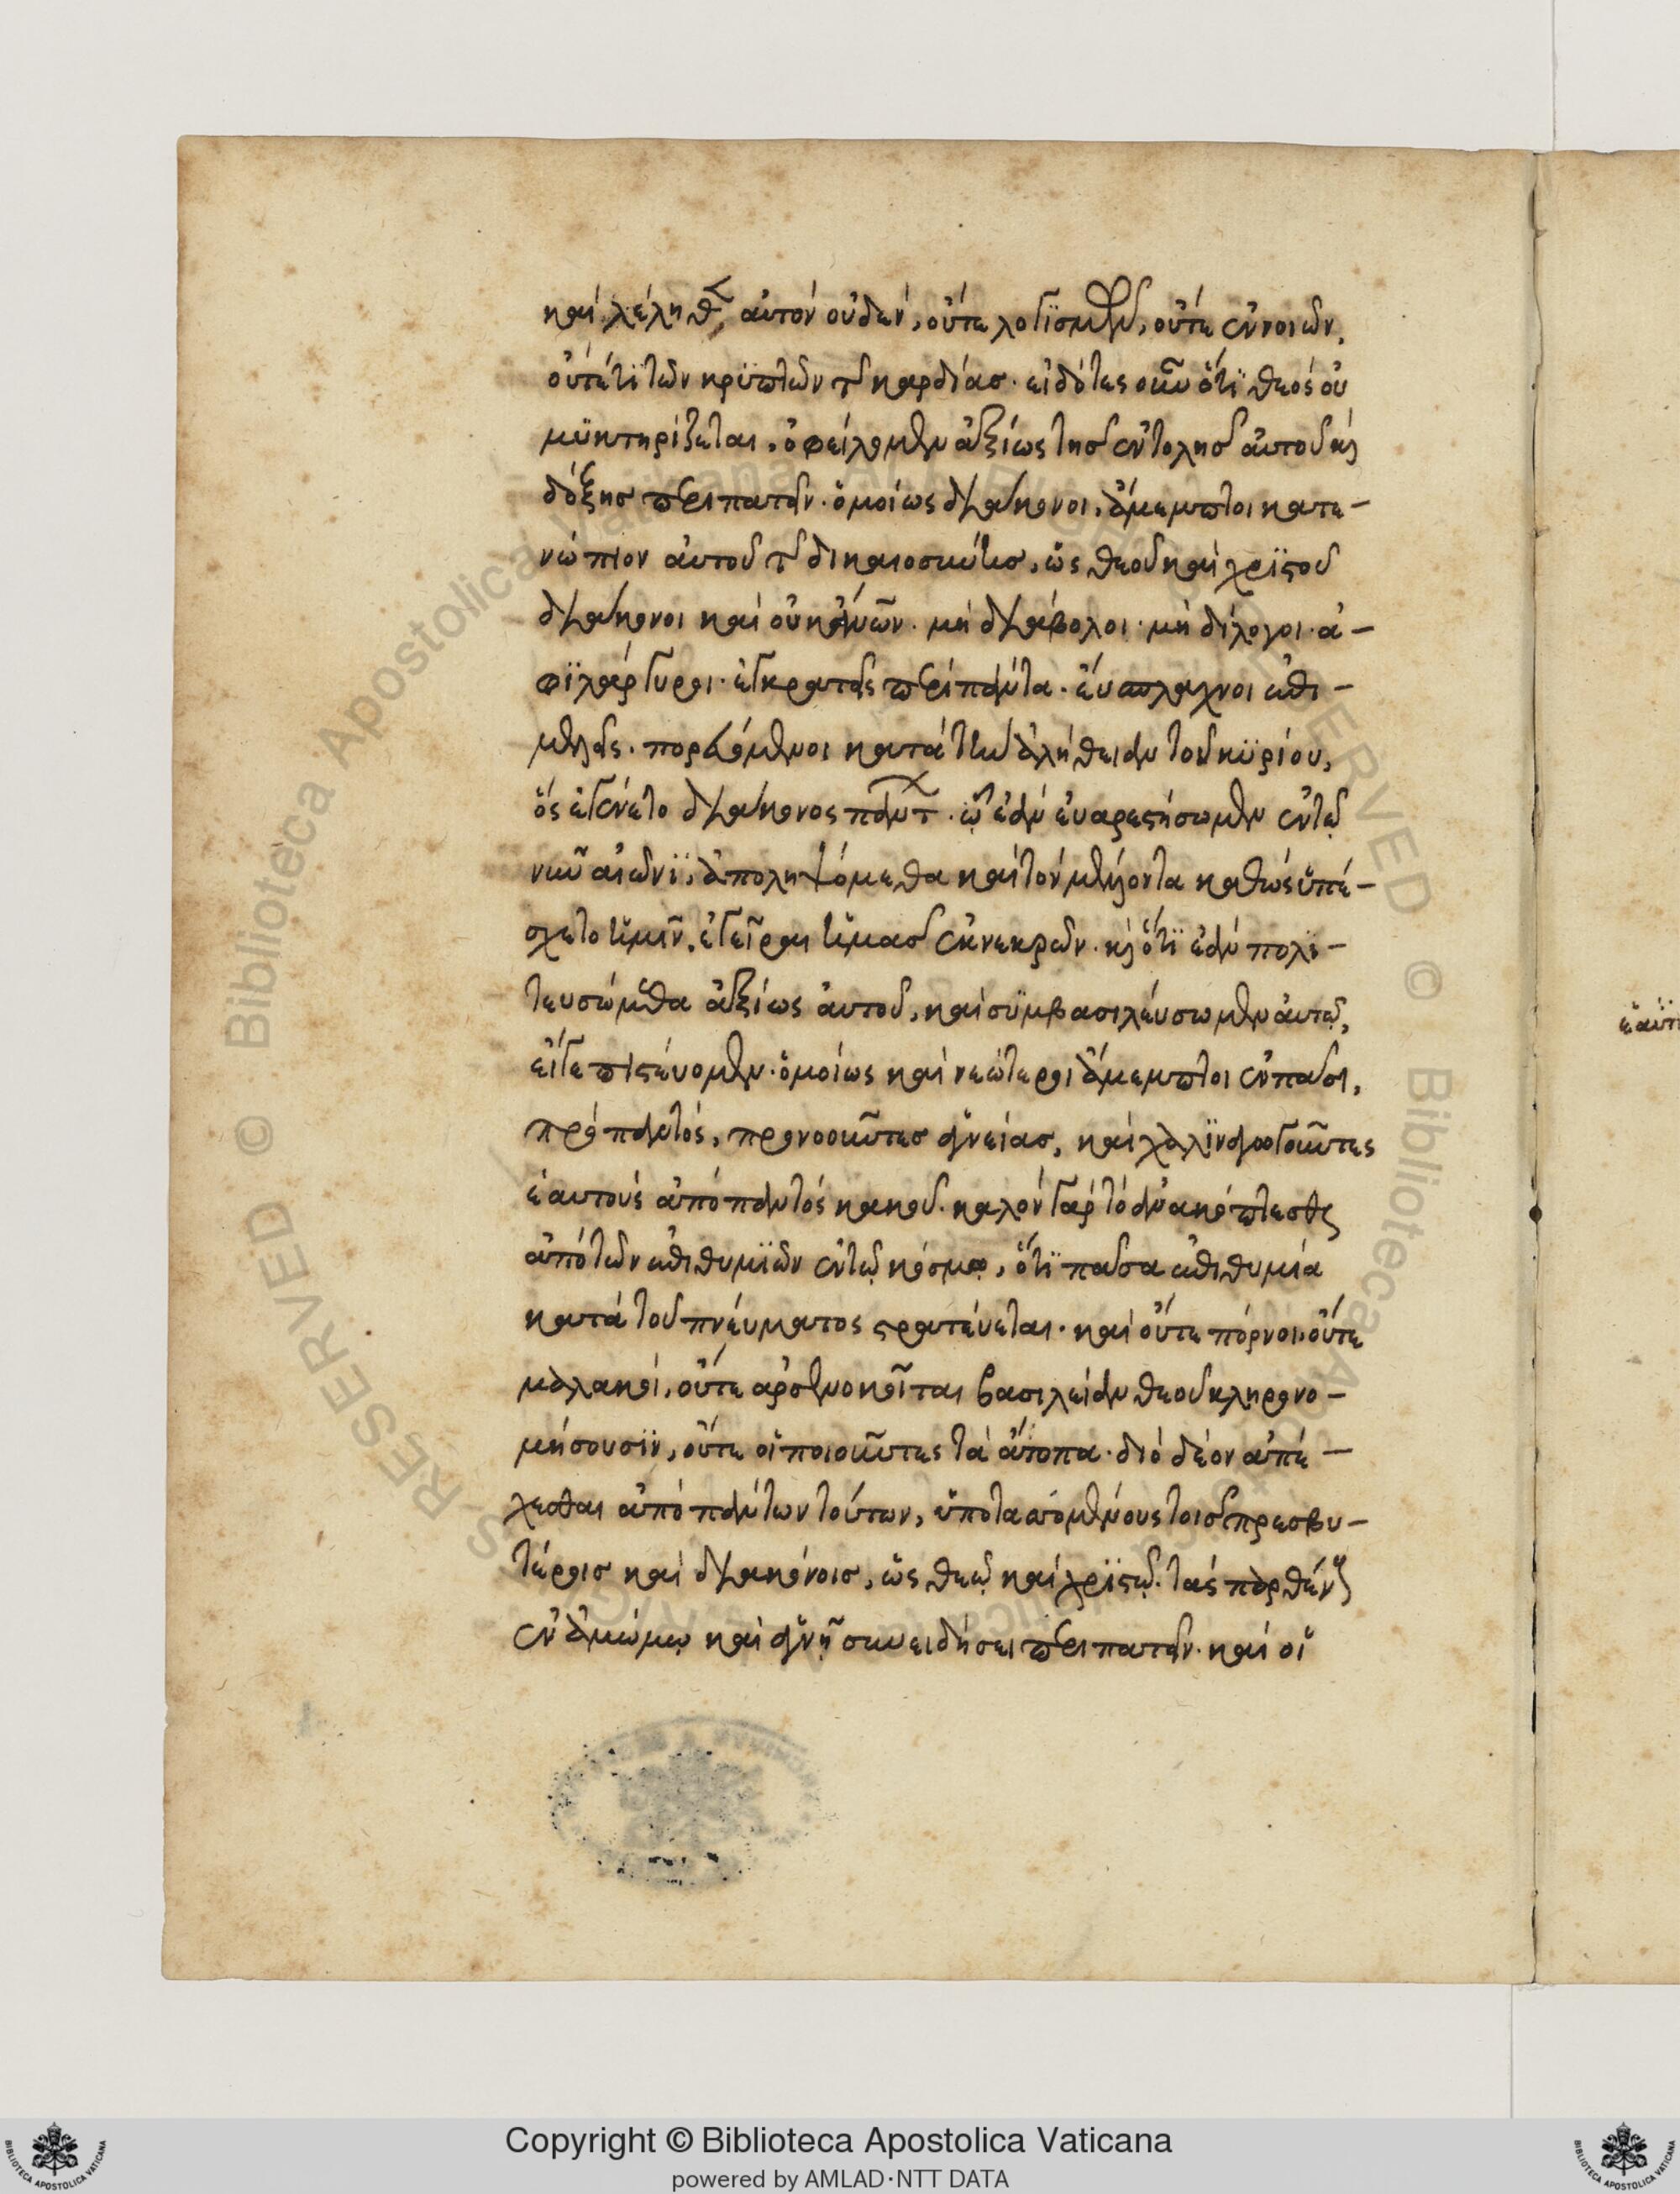 καὶ λέληθεν αὐτὸν οὐδέν, οὔτε λογϊσμῶν, οὔτε ἐννοιῶν,
οὔτέ τϊ τῶν κρϋπτῶν τῆς καρδίας· εἰδότες οὖν ὅτϊ θεὸς οὐ
μϋκτηρίζεται, ὀφείλομεν ἀξίως τῆς ἐντολῆς αὐτοῦ καὶ
δόξης περιπατεῖν· ὁμοίως διάκονοι, ἄμεμπτοι κατε-
νώπιον αὐτοῦ τῆς δικαιοσύνης, ὡς θεοῦ καὶ χρϊστοῦ
διάκονοι καὶ οὐκ ἀνῶν· μὴ διάβολοι· μὴ δίλογοι· ἀ-
φϊλάργυροι· ἐγκρατεῖς περὶ πάντα· εὔσπλαχνοι ἐπι-
μελεῖς· πορευόμενοι κατὰ τὴν ἀλήθειαν τοῦ κϋρίου,
ὃς ἐγένετο διάκονος πάντων· ᾧ ἐὰν εὐαρεστήσωμεν ἐν τῷ
νῦν αἰῶνϊ, ἀποληψόμεθα καὶ τὸν μέλλοντα καθὼς ὑπέ-
σχετο ἡμῖν, ἐγεῖραι ἡμᾶς ἐκ νεκρῶν· καὶ ὅτϊ ἐὰν πολϊ-
τευσώμεθα ἀξίως αὐτοῦ, καὶ σϋμβασιλεύσωμεν αὐτῷ,
εἴγε πιστεύομεν· ὁμοίως καὶ νεώτεροι ἄμεμπτοι ἐν πᾶσι,
πρὸ παντός, προνοοῦντες ἁγνείας, καὶ χαλϊναγωγοῦντες
ἑαυτοὺς ἀπὸ παντὸς κακοῦ· καλὸν γὰρ τὸ ἀνακόπτεσθαι
ἀπὸ τῶν ἐπιθυμϊῶν ἐν τῷ κόσμῳ, ὅτϊ πᾶσα ἐπιθυμία
κατὰ τοῦ πνεύματος στρατεύεται· καὶ οὔτε πόρνοι, οὔτε
μαλακοί, οὔτε ἀρσενοκοῖται βασιλείαν θεοῦ κληρονο-
μήσουσϊν, οὔτε οἱ ποιοῦντες τὰ ἄτοπα· διὸ δέον ἀπέ-
χεσθαι ἀπὸ πάντων τούτων, ὑποτασσομένους τοῖς πρεσβυ-
τέροις καὶ διακόνοις, ὡς θεῷ καὶ χρϊστῷ· τὰς παρθένους
ἐν ἀμώμῳ καὶ ἁγνῇ συνειδήσει περιπατεῖν· καὶ οἱ
Copyright © Biblioteca Apostolica Vaticana
powered by AMLAD·NTT DATA